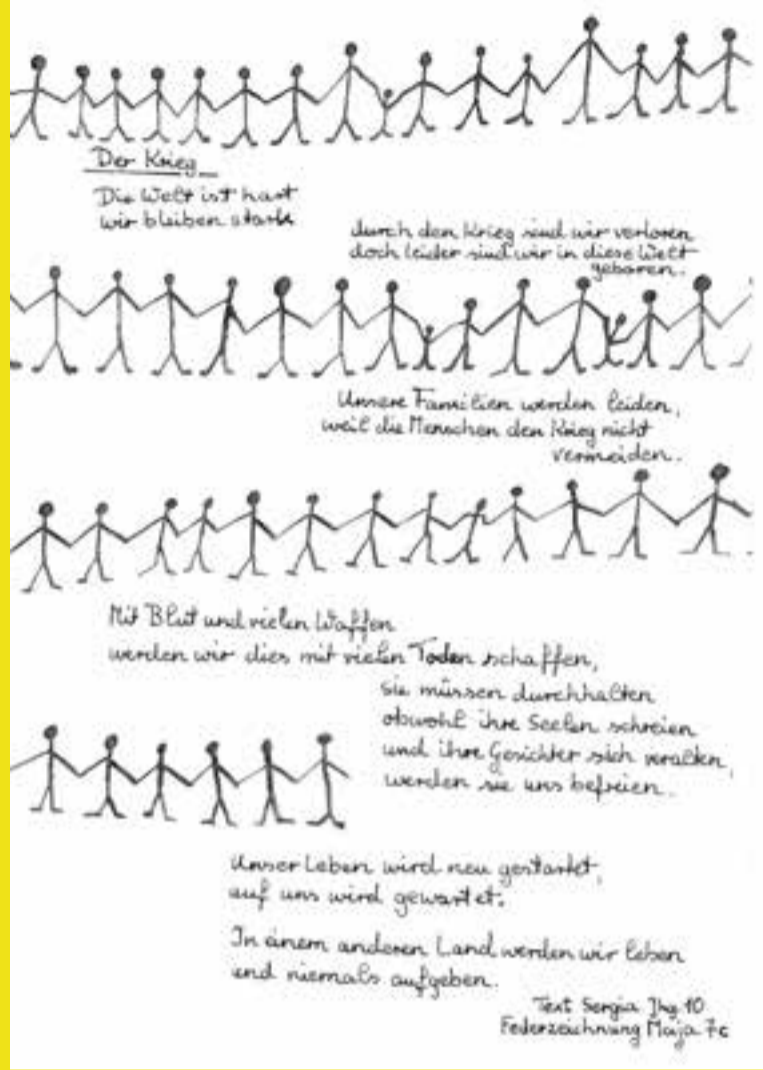 Der Krieg
Die Welt ist hart
wir bleiben stark
durch den Krieg sind wir verloren
doch leider sind wir in diese Welt
geboren.
Unsere Familien werden leiden,
weil die Menschen den Krieg nicht
vermeiden.
Mit Blut und vielen Waffen
werden wir dies mit vielen Toden schaffen,
sie müssen durchhalten
obwohl ihre Seelen schreien
und ihre Gesichter sich veralten,
werden sie uns befreien.
Unser Leben wird neu gestartet,
auf uns wird gewartet.
In einem anderen Land werden wir leben
und niemals aufgeben.
Text Sergia Jhg. 10
Federzeichnung Maja 7c